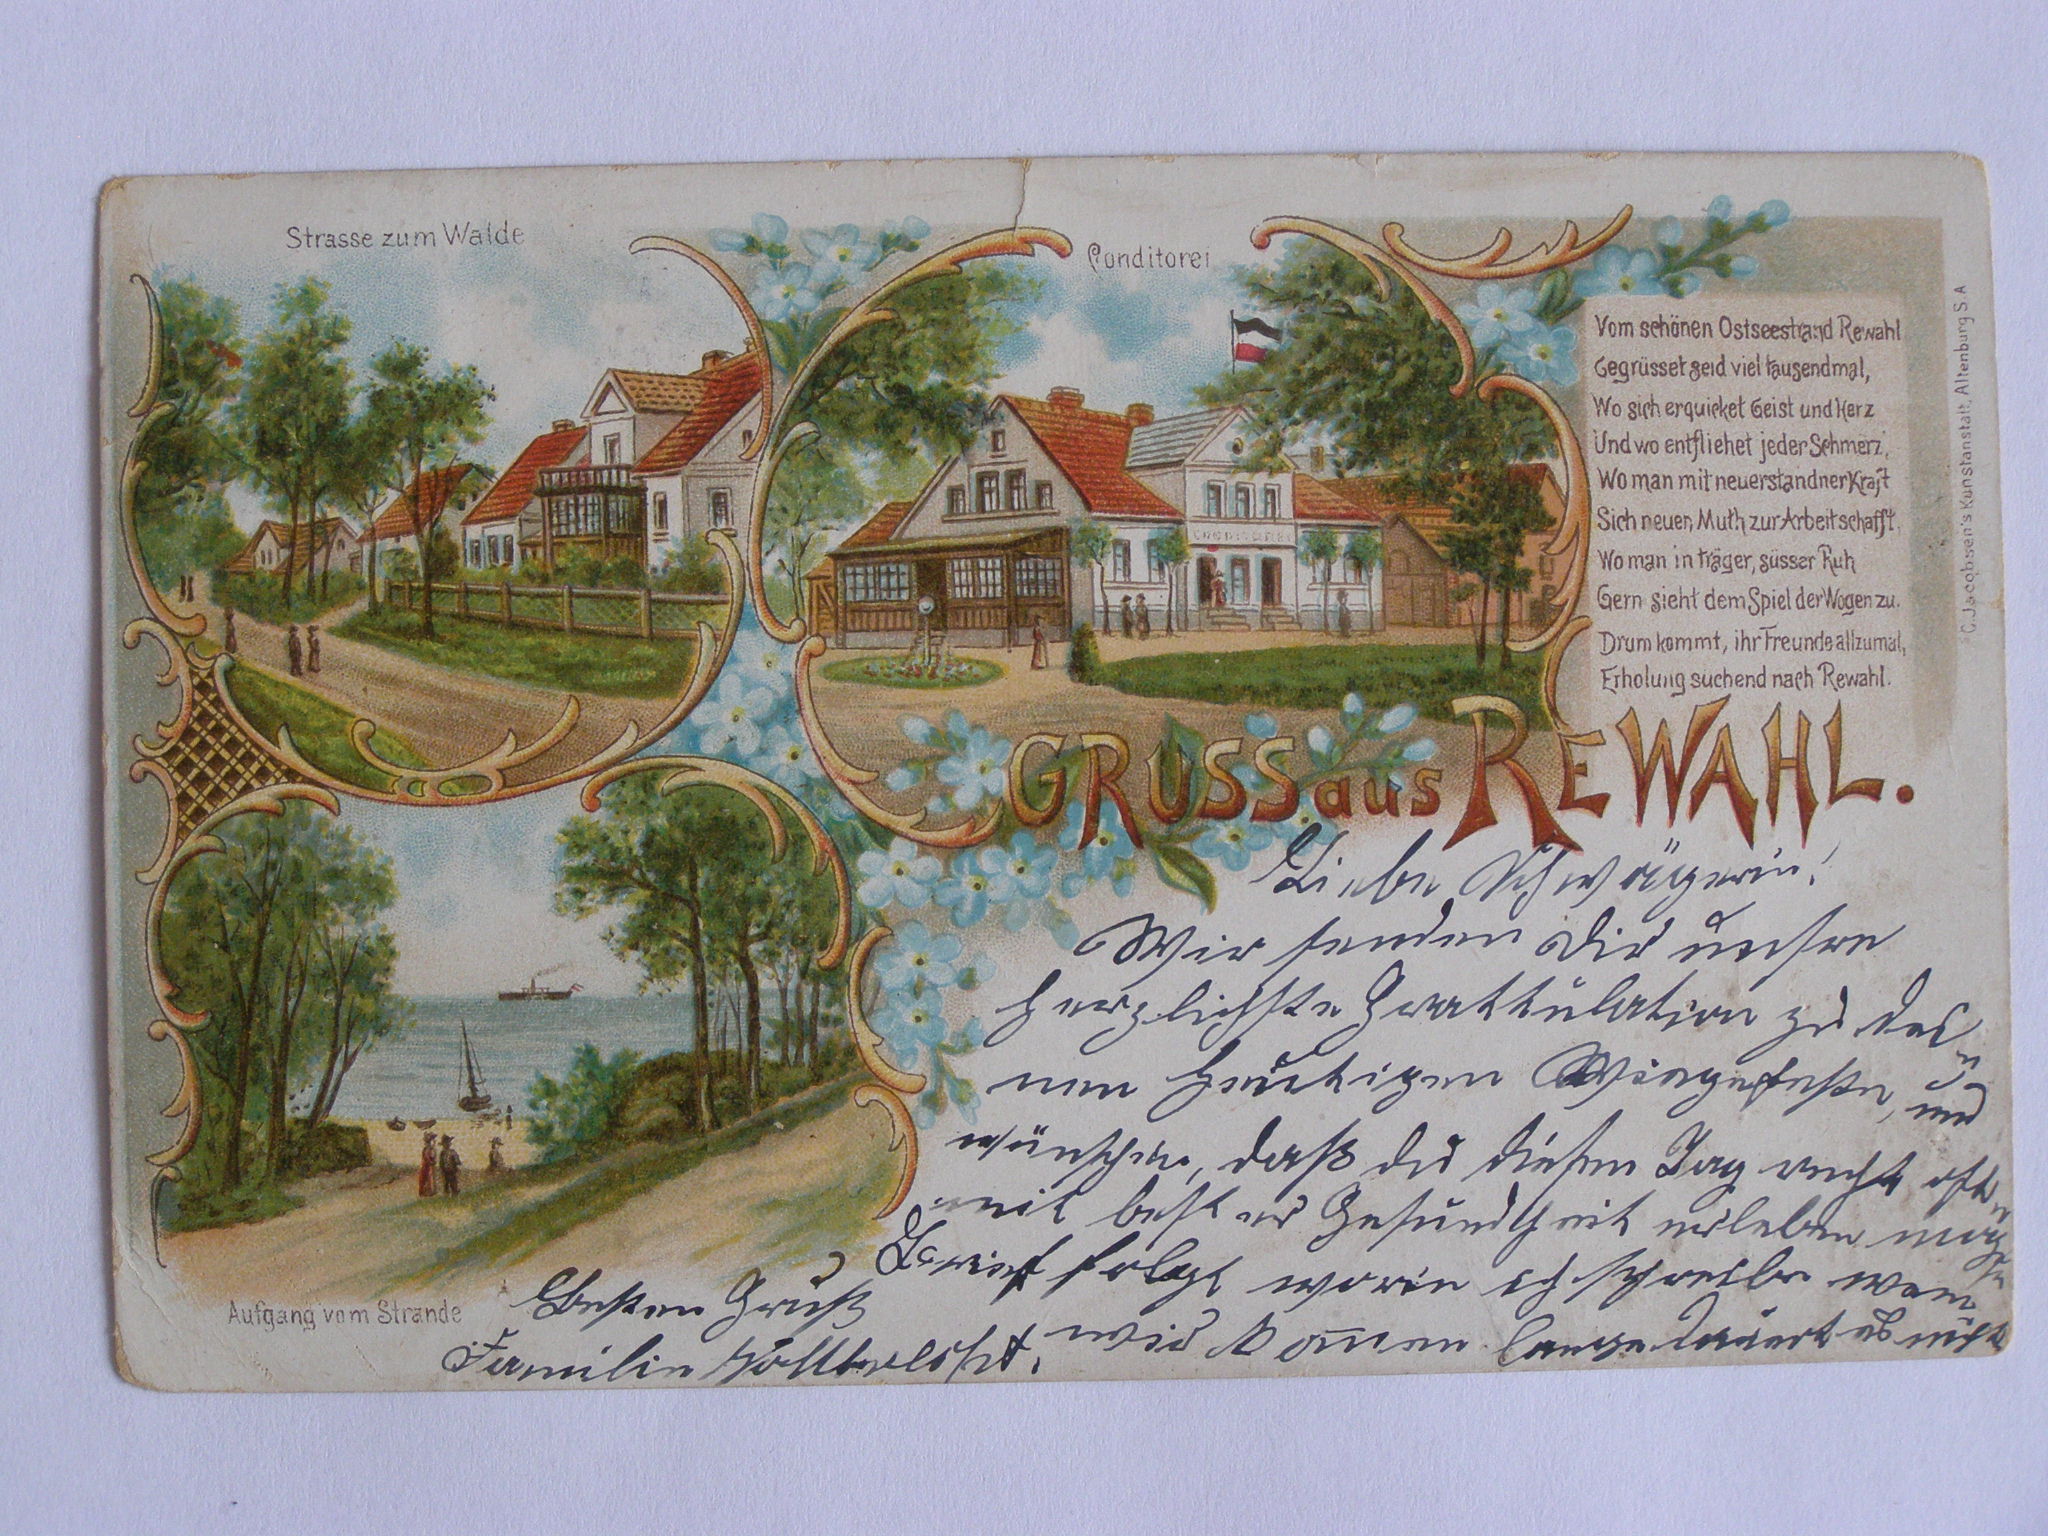 Strasse zum Walde
Conditorei
CONDITOREI
Vom schönen Ostseestrand Rewahl
Gegrüsset seid viel tausendmal,
Wo sich erquicket Geist und Herz
Und wo entfliehet jeder Schmerz,
Wo man mit neuerstandner Kraft
Sich neuen Muth zur Arbeit schafft,
Wo man in träger, süsser Ruh
Gern sieht dem Spiel der Wogen zu.
Drum kommt, ihr Freunde allzumal,
Erholung suchend nach Rewahl.
C. Jacobsen's Kunstanstalt, Altenburg S. A
GRUSS aus REWAHL.
Liebe Schwägerin!
Wir senden Dir unsre
herzlichste Grattulation zu dei
nen heutigen Wiegefeste, und
wünschen, daß du diesen Tag recht oft
mit bester Gesundheit erleben mögest
Brief folgt worin ich schreibe wen
wir komen lange dauert es nicht
Besten Gruß
Familie
Aufgang vom Strande